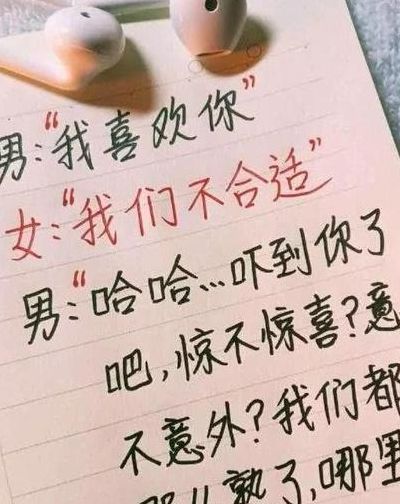 男:“我喜欢你”
女:“我们不合适”
男:“哈哈...吓到你了
吧,惊不惊喜?意
不意外?我们都
那么熟了,哪里